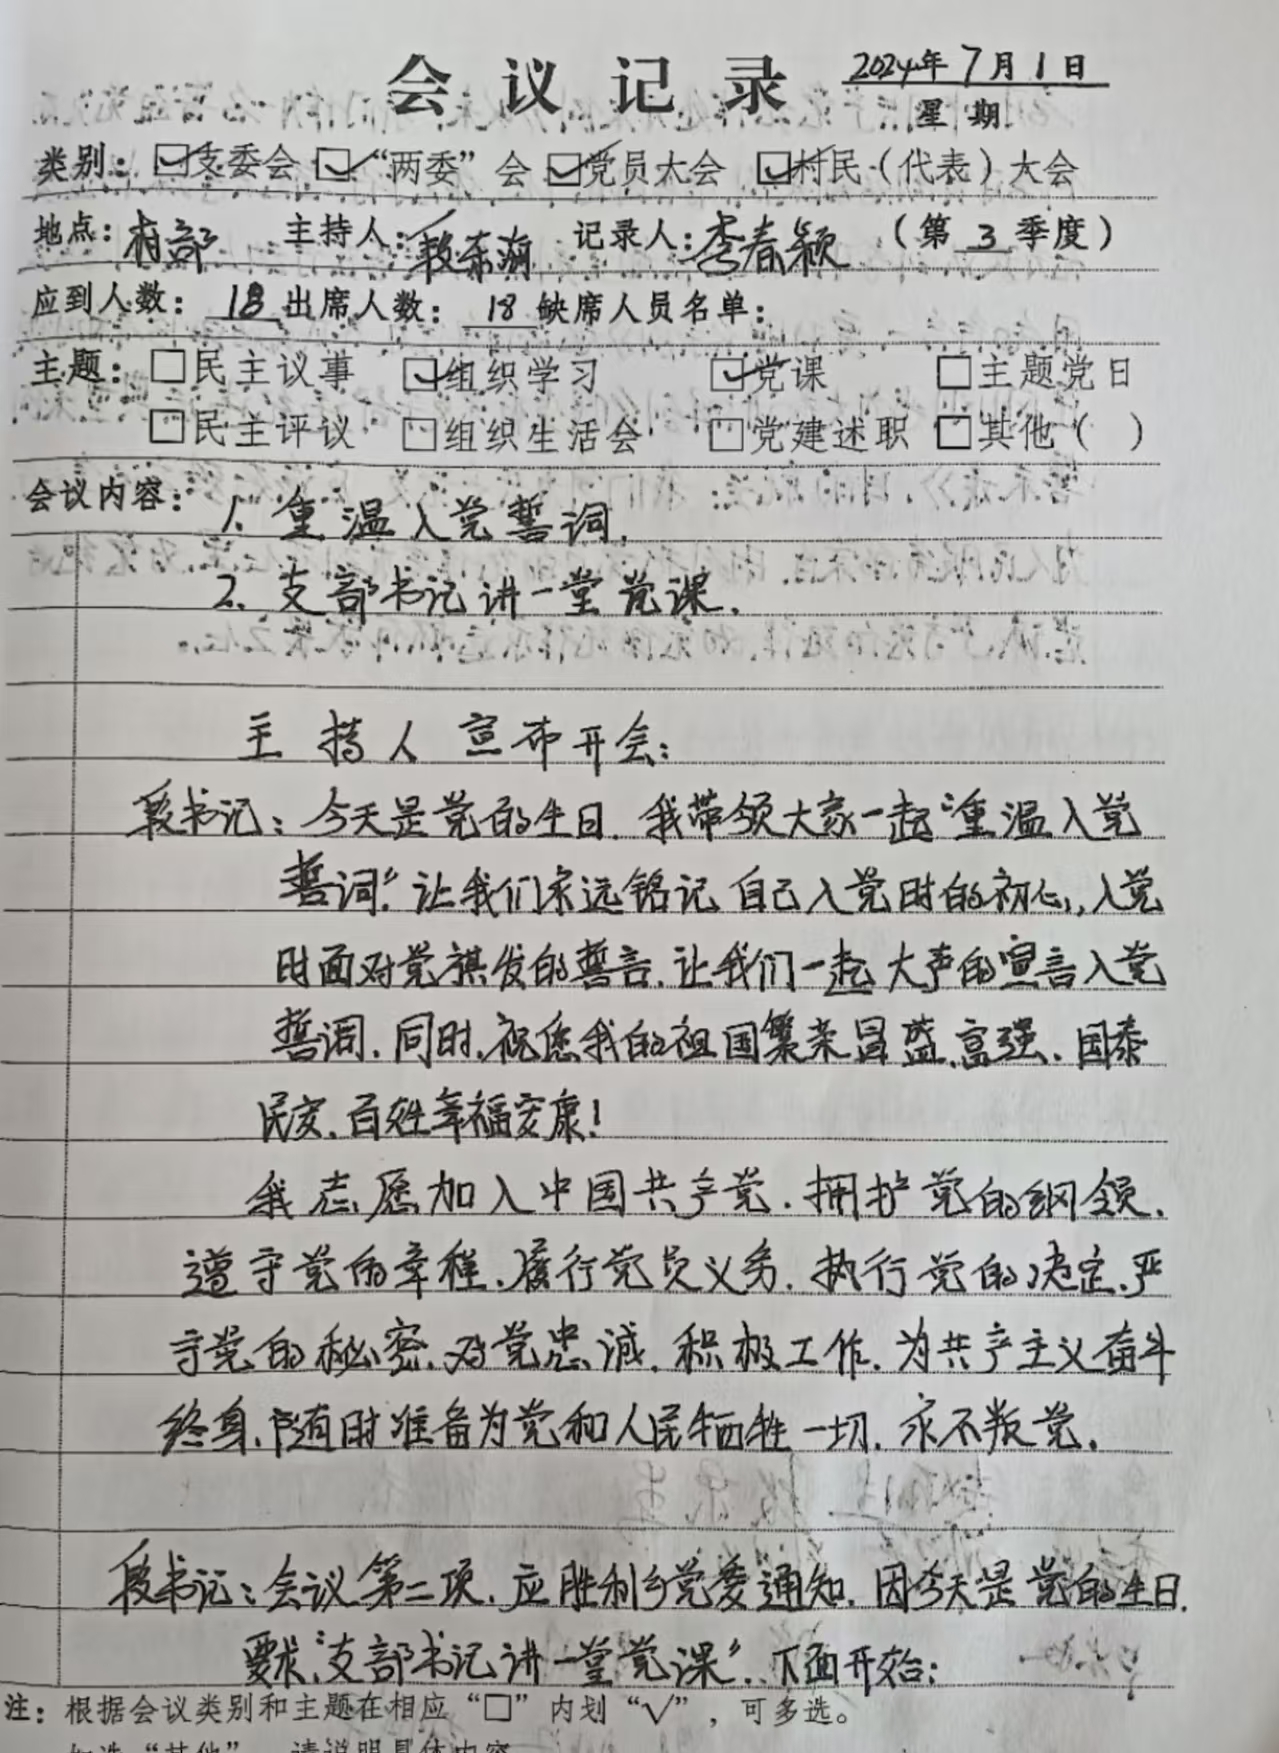 会议记录 2024年7月1日
星期
类别：☑支委会 ☑“两委”会 ☑党员大会 ☑村民（代表）大会
地点：村部 主持人：段东海 记录人：李春颖 （第3季度）
应到人数：18出席人数：18缺席人员名单：
主题：□民主议事 ☑组织学习 ☑党课 □主题党日
□民主评议 □组织生活会 □党建述职 □其他（ ）
会议内容：1、重温入党誓词.
2、支部书记讲一堂党课.
主持人宣布开会：
段书记：今天是党的生日.我带领大家一起“重温入党
誓词”让我们永远铭记自己入党时的初心，入党
时面对党旗发的誓言.让我们一起大声的宣言入党
誓词.同时.祝愿我的祖国繁荣昌盛.富强、国泰
民安.百姓幸福安康！
我志愿加入中国共产党.拥护党的纲领.
遵守党的章程.履行党员义务.执行党的决定.严
守党的秘密.对党忠诚.积极工作.为共产主义奋斗
终身.随时准备为党和人民牺牲一切.永不叛党.
段书记：会议第二项.应胜利乡党委通知.因今天是党的生日.
要求“支部书记讲一堂党课”.下面开始：
注：根据会议类别和主题在相应“□”内划“√”，可多选。